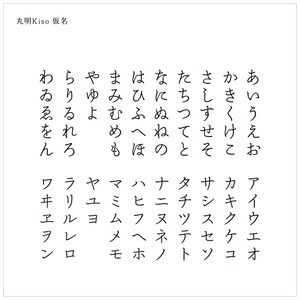 丸明Kiso 仮名
あいうえお
かきくけこ
さしすせそ
たちつてと
なにぬねの
はひふへほ
まみむめも
やゆよ
らりるれろ
わゐゑをん
アイウエオ
カキクケコ
サシスセソ
タチツテト
ナニヌネノ
ハヒフヘホ
マミムメモ
ヤユヨ
ラリルレロ
ワヰヱヲン